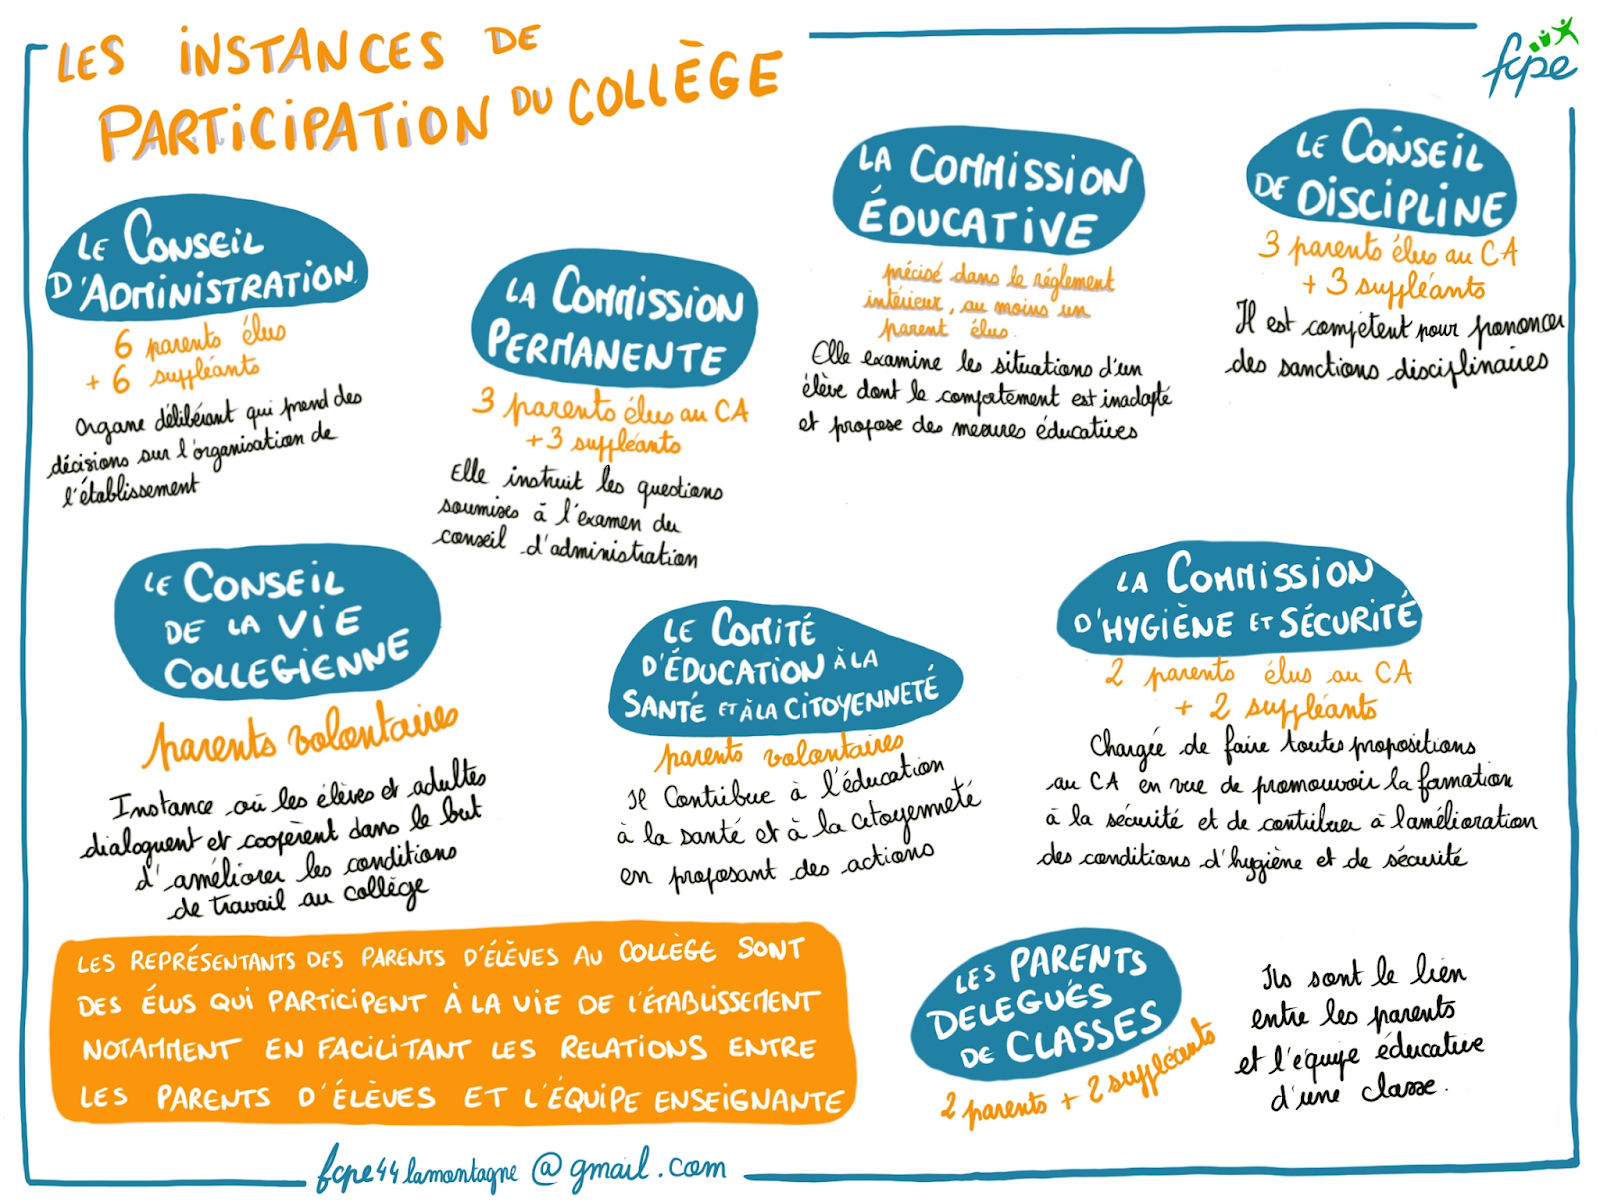 LES INSTANCES DE
PARTICIPATION DU COLLÈGE
fcpe
LE CONSEIL
D'ADMINISTRATION
6 parents élus
+ 6 suppléants
Organe délibérant qui prend des
décisions sur l'organisation de
l'établissement
LA COMMISSION
PERMANENTE
3 parents élus au CA
+ 3 suppléants
Elle instruit les questions
soumises à l'examen du
conseil d'administration
LA COMMISSION
ÉDUCATIVE
précisé dans le réglement
intérieur, au moins un
parent élus.
Elle examine les situations d'un
élève dont le comportement est inadapté
et propose des mesures éducatives
LE CONSEIL
DE DISCIPLINE
3 parents élus au CA
+ 3 suppléants
Il est compétent pour prononcer
des sanctions disciplinaires
LE CONSEIL
DE LA VIE
COLLEGIENNE
parents volontaires
Instance où les élèves et adultes
dialoguent et coopèrent dans le but
d'améliorer les conditions
de travail au collège
LE COMITÉ
D'ÉDUCATION À LA
SANTÉ ET À LA CITOYENNETÉ
parents volontaires
Il contribue à l'éducation
à la santé et à la citoyenneté
en proposant des actions
LA COMMISSION
D'HYGIÈNE ET SÉCURITÉ
2 parents élus au CA
+ 2 suppléants
Chargée de faire toutes propositions
au CA en vue de promouvoir la formation
à la sécurité et de contribuer à l'amélioration
des conditions d'hygiène et de sécurité
LES REPRÉSENTANTS DES PARENTS D'ÉLÈVES AU COLLÈGE SONT
DES ÉLUS QUI PARTICIPENT À LA VIE DE L'ÉTABLISSEMENT
NOTAMMENT EN FACILITANT LES RELATIONS ENTRE
LES PARENTS D'ÉLÈVES ET L'ÉQUIPE ENSEIGNANTE
LES PARENTS
DELEGUÉS
DE CLASSES
2 parents + 2 suppléants
Ils sont le lien
entre les parents
et l'équipe éducative
d'une classe.
fcpe44lamontagne@gmail.com